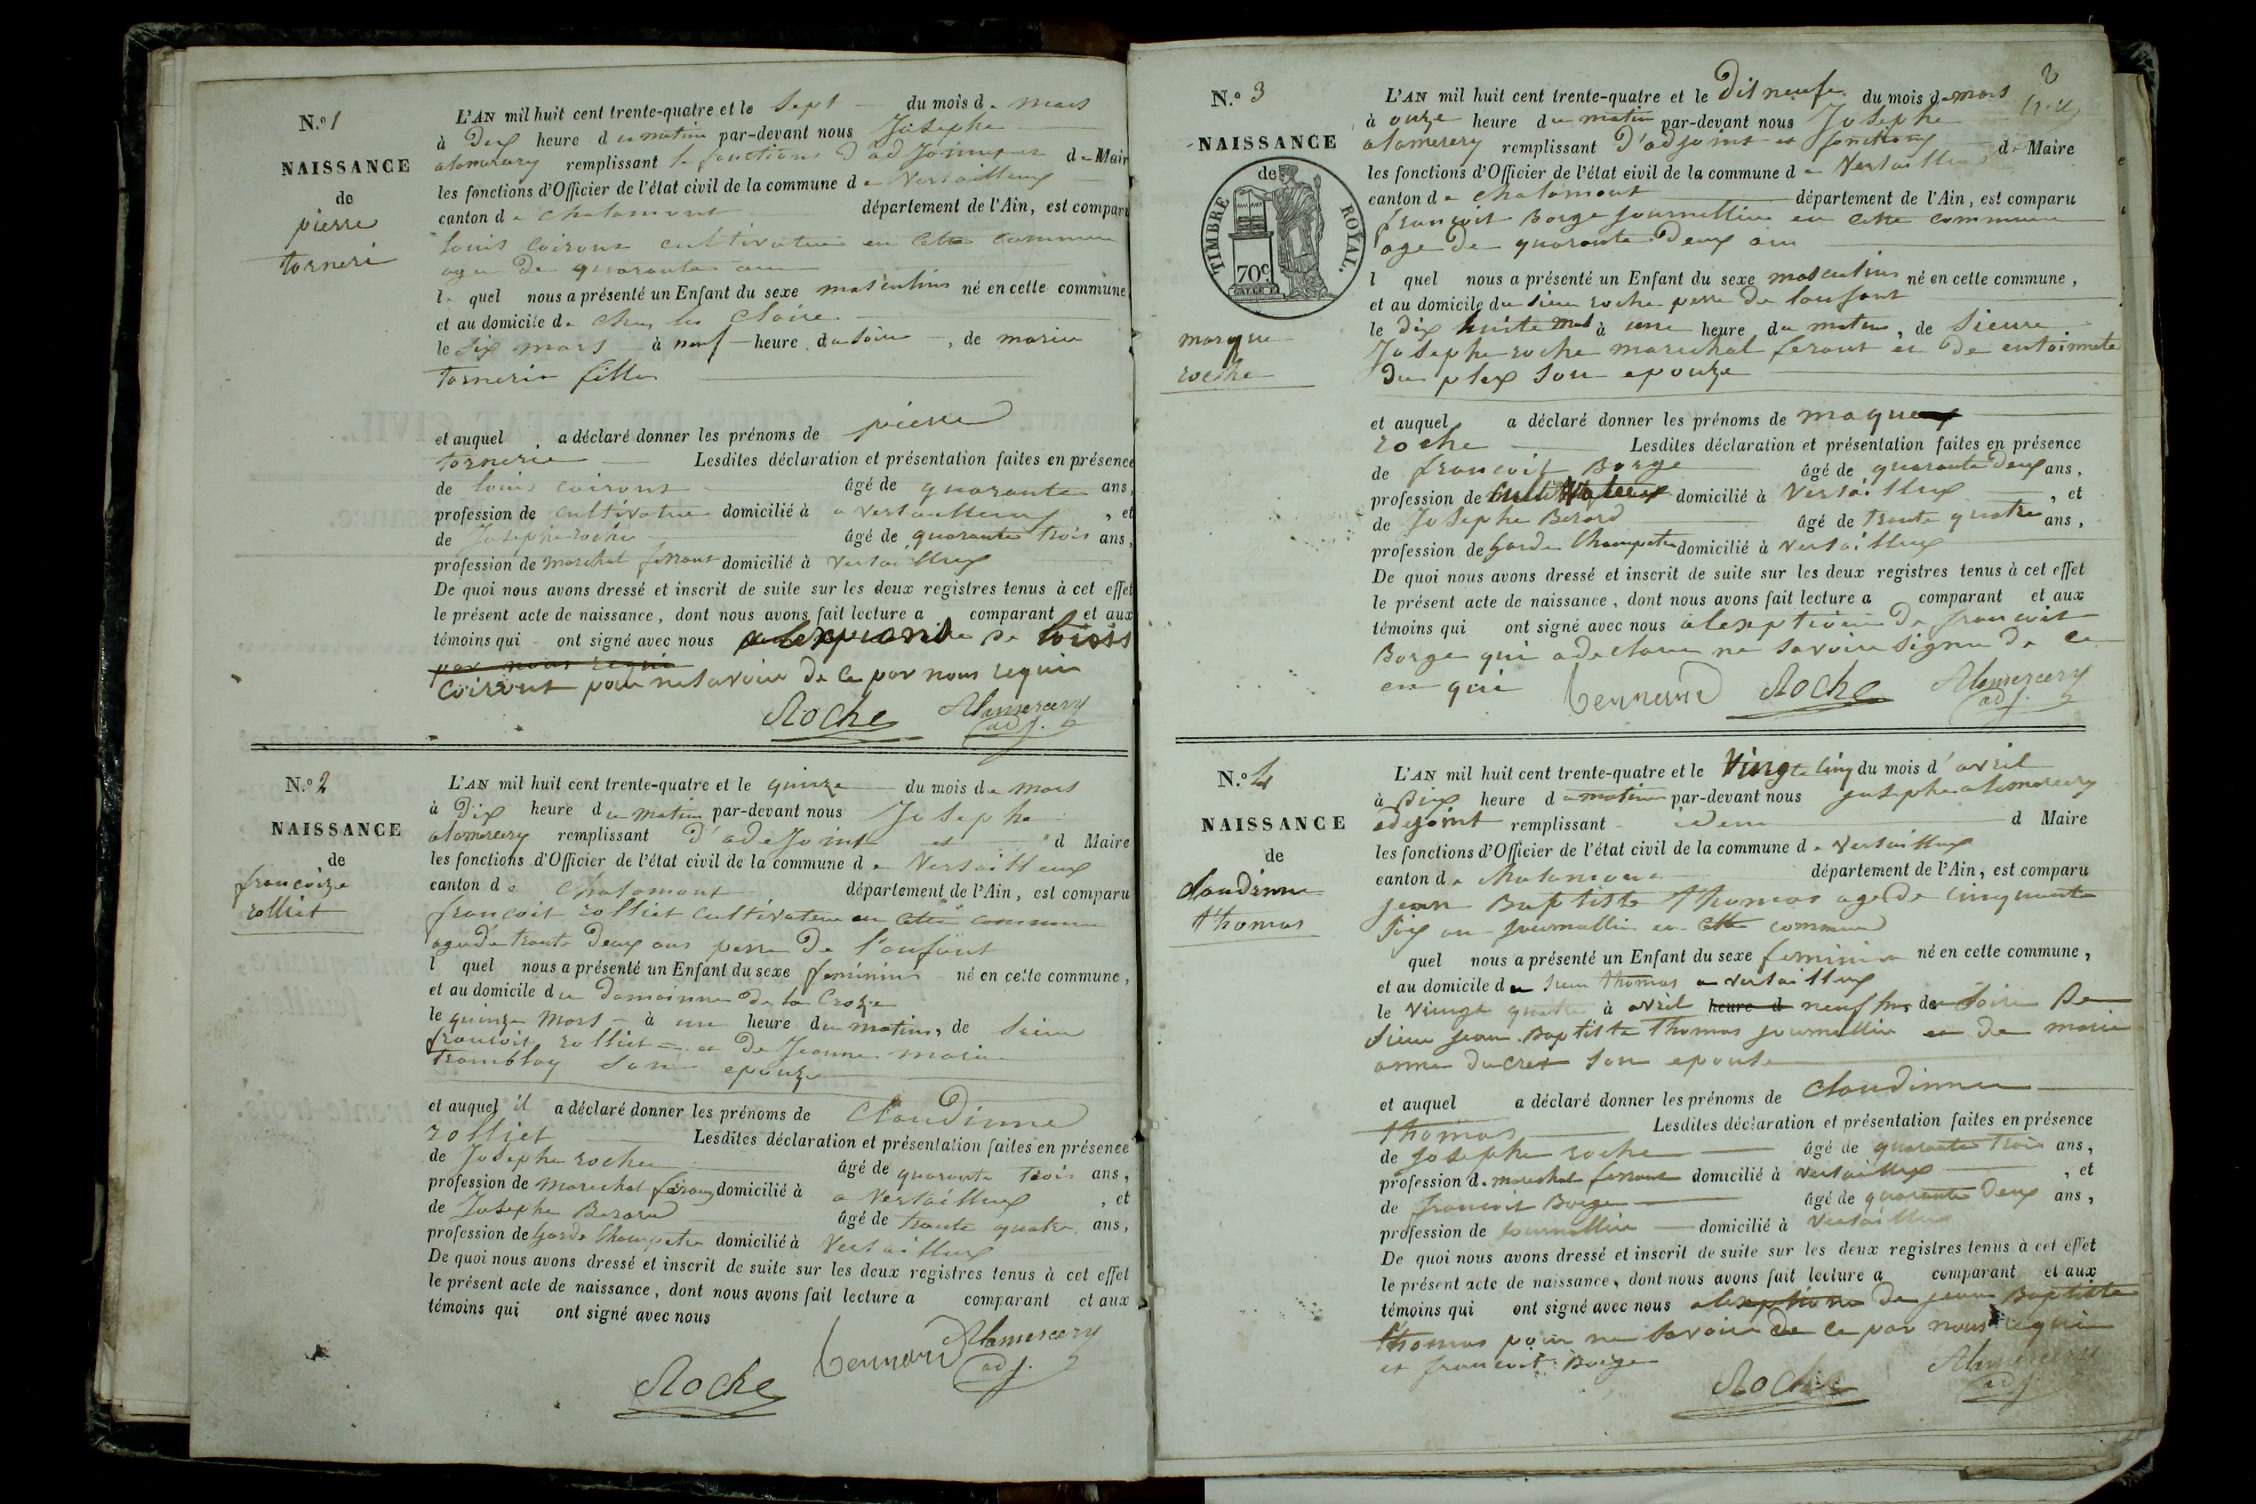 N.o 1
NAISSANCE
de
pierre
torneri
L'AN mil huit cent trente-quatre et le sept du mois de mars
à Dix heure du matin par-devant nous Josephe
alamercery remplissant le fonctions d'adjoint de Maire
les fonctions d'Officier de l'état civil de la commune de Versailleux
canton de chalamont département de l'Ain, est comparu
louis coiront cultivateur en cette commune
age de quarante ans
le quel nous a présenté un Enfant du sexe masculins né en cette commune
et au domicile de chez les Claire
le six mars à neuf heure du soire, de marie
tornerie fille
et auquel a déclaré donner les prénoms de pierre
tornerie Lesdites déclaration et présentation faites en présence
de louis coiront âgé de quarante ans,
profession de cultivateur domicilié à a versailleux, et
de Josephe roche âgé de quarante trois ans,
profession de marechal ferrant domicilié à versailleux
De quoi nous avons dressé et inscrit de suite sur les deux registres tenus à cet effet
le présent acte de naissance, dont nous avons fait lecture a comparant et aux
témoins qui ont signé avec nous de louis
par nous requi
coiront pour ne savoire de ce par nous requi
Roche Alamercery
adj.
N.o 2
NAISSANCE
de
francoize
rolliet
L'AN mil huit cent trente-quatre et le quinze du mois de mars
à Dix heure du matin par-devant nous Josephe
alamercery remplissant d'adejoint et d Maire
les fonctions d'Officier de l'état civil de la commune de Versailleux
canton de Chalamont département de l'Ain, est comparu
francoit rolliet cultivateur en cette commune
agé de trante deux ans perre de l'anfant
l quel nous a présenté un Enfant du sexe feminins né en cette commune,
et au domicile du domainne de la Croze
le quinze mars à une heure du matins, de sieur
francoit rolliet et de Jeanne marie
tramblay son epouze
et auquel il a déclaré donner les prénoms de Claudinne
rolliet Lesdites déclaration et présentation faites en présence
de Josephe roche âgé de quarante trois ans,
profession de marechal feraux domicilié à a versailleux, et
de Josephe Berard âgé de trante quatre ans,
profession de Garde Champetre domicilié à versailleux
De quoi nous avons dressé et inscrit de suite sur les deux registres tenus à cet effet
le présent acte de naissance, dont nous avons fait lecture a comparant et aux
témoins qui ont signé avec nous
Alamercery
adj.
Roche
2
N.o 3
NAISSANCE
de
TIMBRE ROYAL.
70c
marque
roche
L'AN mil huit cent trente-quatre et le Dit neufe du mois de mars
à onze heure du matin par-devant nous Josephe
alamercery remplissant d'adjoint et fonctions de Maire
les fonctions d'Officier de l'état civil de la commune de Versailleux
canton de chalamont département de l'Ain, est comparu
francoit Borge journallier en cette commune
age de quarante deux ans
l quel nous a présenté un Enfant du sexe masculins né en cette commune,
et au domicile du sieur roche perre de lanfant
le dix huite mars à une heure du matin, de sieure
Josephe roche marechal ferant et de entoinnete
du plex son epouze
et auquel a déclaré donner les prénoms de maque
roche Lesdites déclaration et présentation faites en présence
de francoit Borge âgé de quarante deux ans,
profession de cultivateur domicilié à versailleux, et
de Josephe Berard âgé de trante quatre ans,
profession de Garde Champetre domicilié à versailleux
De quoi nous avons dressé et inscrit de suite sur les deux registres tenus à cet effet
le présent acte de naissance, dont nous avons fait lecture a comparant et aux
témoins qui ont signé avec nous alexption de francoit
Borge qui a declare ne savoire signe de ce
en qui Roche Alamercery
adj.
N.o 4
NAISSANCE
de
claudinne
thomas
L'AN mil huit cent trente-quatre et le Vingte cinq du mois d'avril
à Dix heure du matin par-devant nous josephe alamercery
adejoint remplissant idem d Maire
les fonctions d'Officier de l'état civil de la commune de Versailleux
canton de Chalamont département de l'Ain, est comparu
jean Baptiste thomas age de cinquante
six an journallier en cette commune
quel nous a présenté un Enfant du sexe feminin né en cette commune,
et au domicile du sieur thomas a versailleux
le vingt quatre à avril heure d neuf heure du soire De
sieur jean Baptiste thomas journallier et de marie
anne ducret son epouse
et auquel a déclaré donner les prénoms de claudinne
thomas Lesdites déclaration et présentation faites en présence
de josephe roche âgé de quarante trois ans,
profession de marechal ferrant domicilié à versailleux, et
de francoit Borge âgé de quarante deux ans,
profession de journallier domicilié à versailleux
De quoi nous avons dressé et inscrit de suite sur les deux registres tenus à cet effet
le présent acte de naissance, dont nous avons fait lecture a comparant et aux
témoins qui ont signé avec nous alexption de jean Baptiste
thomas pour ne savoire de ce par nous requi
et francoit Borge
Roche Alamercery
adj